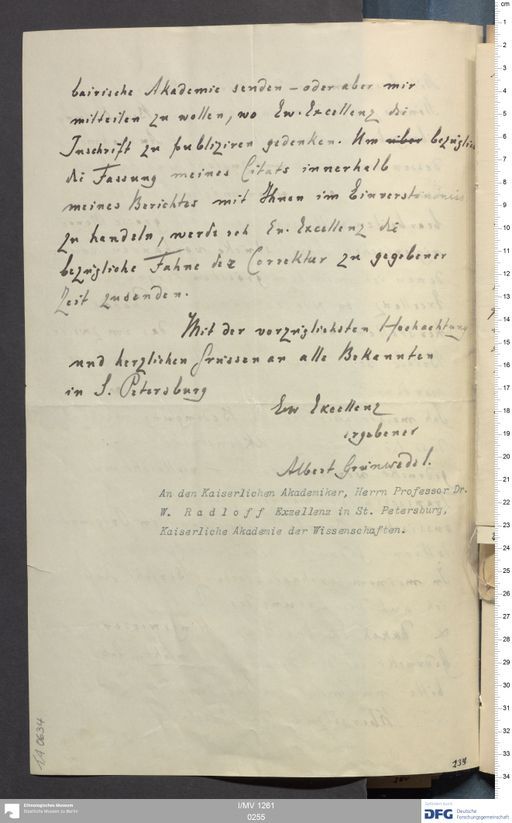 bairische Akademie senden – oder aber mir
mitteilen zu wollen, wo Ew. Excellenz die
Inschrift zu publiziren gedenken. Um über bezüglich
die Fassung meines Citats innerhalb
meines Berichtes mit Ihnen im Einverständniss
zu handeln, werde ich Ew. Excellenz die
bezügliche Fahne der Correktur zu gegebener
Zeit zusenden.
Mit der vorzüglichsten Hochachtung
und herzlichen Grüssen an alle Bekannten
in S. Petersburg
Ew Excellenz
ergebener
Albert Grünwedel.
An den Kaiserlichen Akademiker, Herrn Professor Dr.
W. Radloff Exzellenz in St. Petersburg,
Kaiserliche Akademie der Wissenschaften.
1A 0634
134
cm
1
2
3
4
5
6
7
8
9
10
11
12
13
14
15
16
17
18
19
20
21
22
23
24
25
26
27
28
29
30
31
32
33
34
Ethnologisches Museum
Staatliche Museen zu Berlin
I/MV 1261
0255
Gefördert durch
DFG Deutsche
Forschungsgemeinschaft